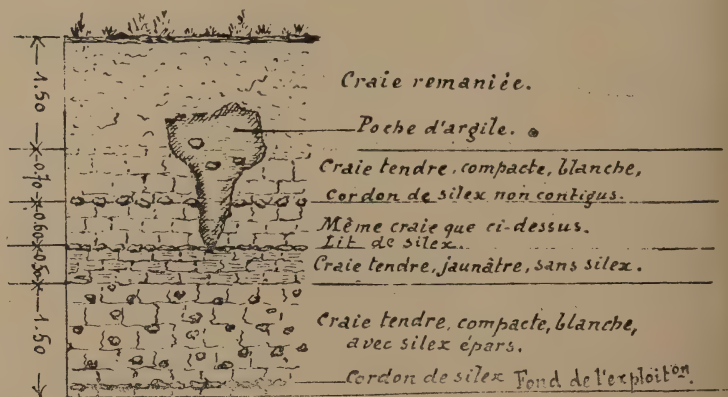 1.50
Craie remaniée.
Poche d'argile.
0.70
Craie tendre, compacte, blanche,
Cordon de silex non contigus.
0.60
Même craie que ci-dessus.
Lit de silex.
0.50
Craie tendre, jaunâtre, sans silex.
1.50
Craie tendre, compacte, blanche,
avec silex épars.
Cordon de silex Fond de l'exploit.on